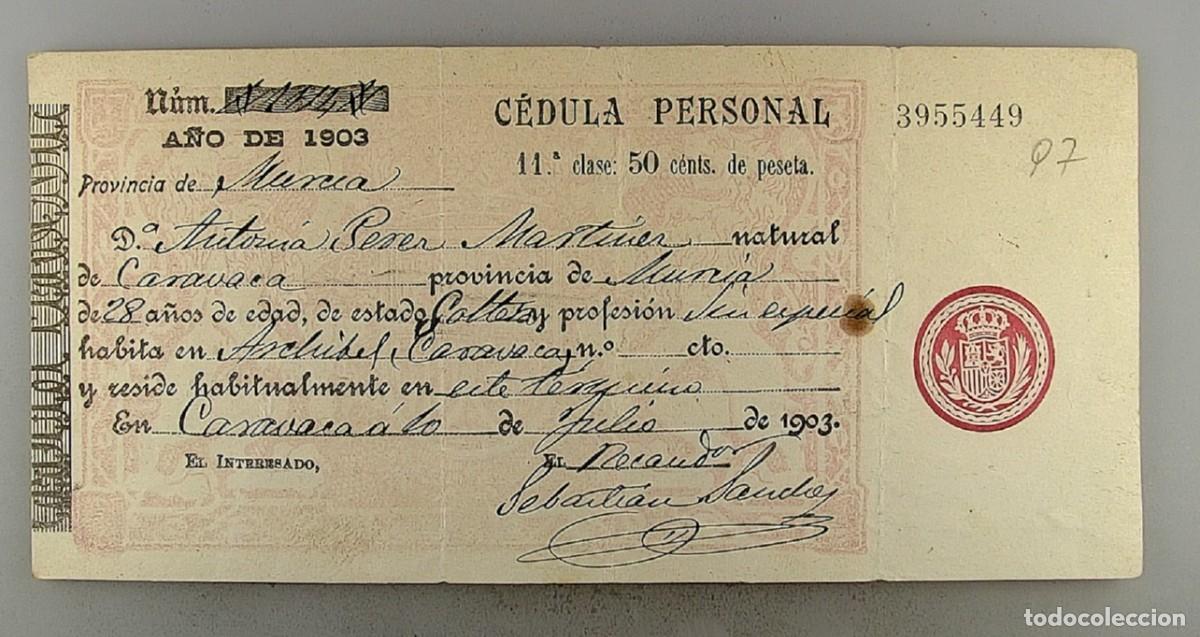 Núm.
AÑO DE 1903
CÉDULA PERSONAL
3955449
11.ª clase: 50 cénts. de peseta.
97
Provincia de Murcia
D.ª Antonia Perez Martinez natural
de Caravaca provincia de Murcia
de 28 años de edad, de estado Soltera y profesión Sin especial
habita en Archibel, Caravaca, n.º cto.
y reside habitualmente en este término
En Caravaca á 10 de Julio de 1903.
EL INTERESADO,
EL Recaudor
Sebastián Sanchez
todocoleccion